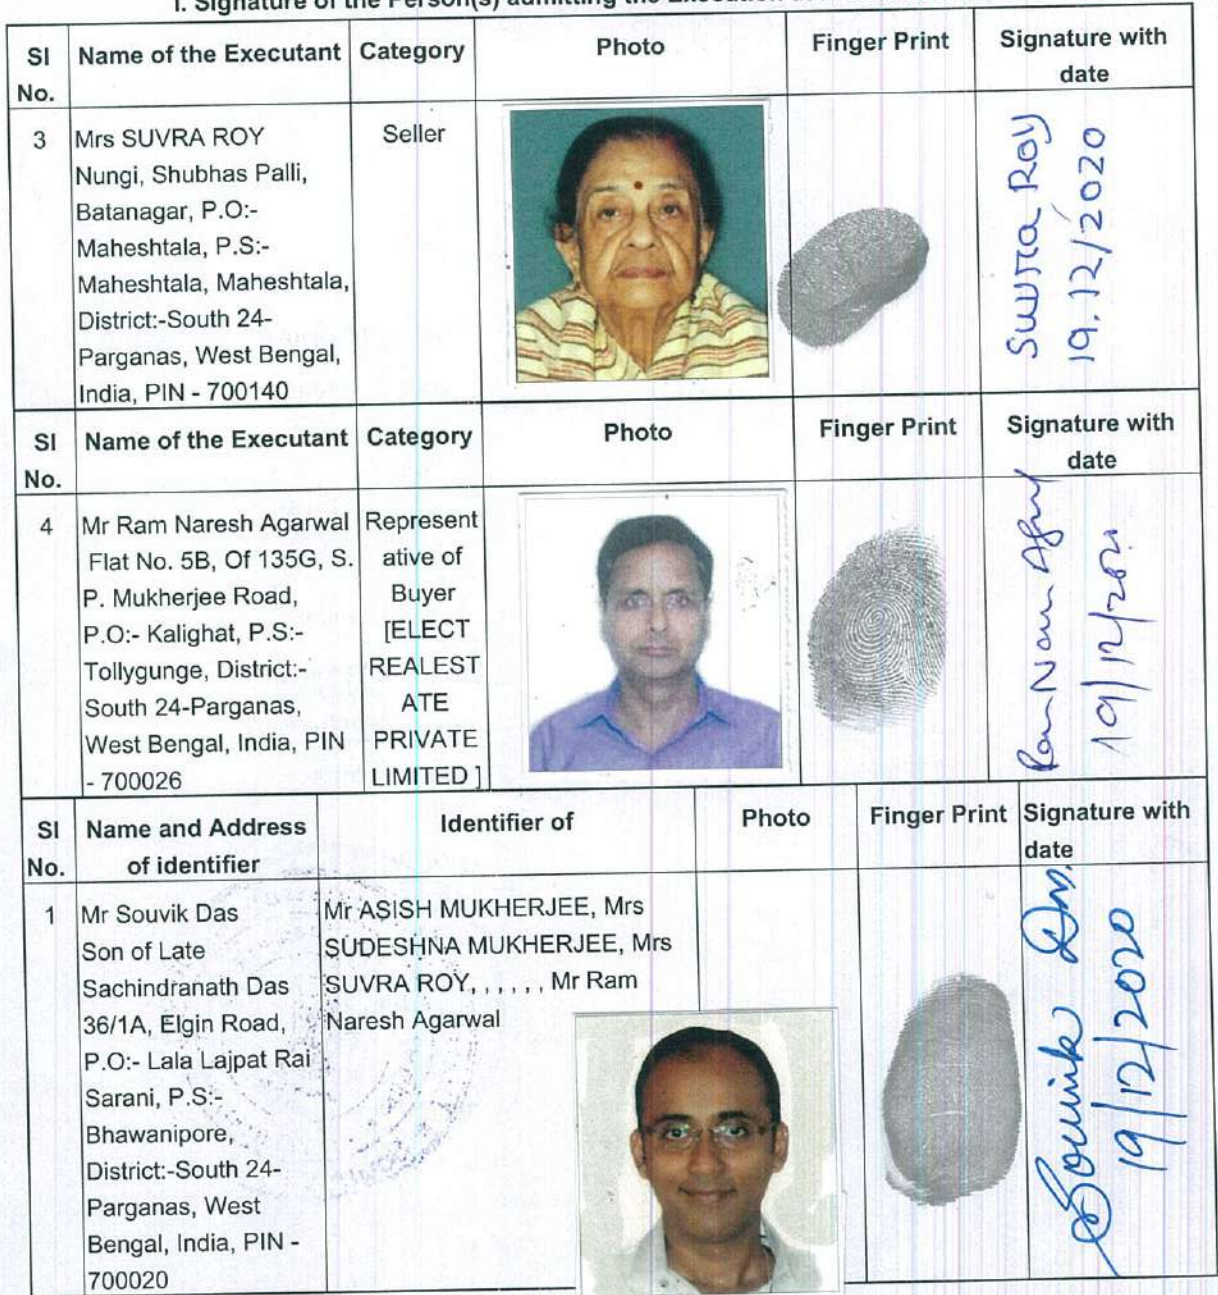 I. Signature of the Person(s) admitting the Execution
SI No. Name of the Executant Category Photo Finger Print Signature with date
3 Mrs SUVRA ROY Seller
Nungi, Shubhas Palli,
Batanagar, P.O:-
Maheshtala, P.S:-
Maheshtala, Maheshtala,
District:-South 24-
Parganas, West Bengal,
India, PIN - 700140
Suvra Roy
19.12/2020
SI No. Name of the Executant Category Photo Finger Print Signature with date
4 Mr Ram Naresh Agarwal
Flat No. 5B, Of 135G, S.
P. Mukherjee Road,
P.O:- Kalighat, P.S:-
Tollygunge, District:-
South 24-Parganas,
West Bengal, India, PIN
- 700026
Represent
ative of
Buyer
[ELECT
REALEST
ATE
PRIVATE
LIMITED ]
19/12/2020
SI No. Name and Address of identifier Identifier of Photo Finger Print Signature with date
1 Mr Souvik Das
Son of Late
Sachindranath Das
36/1A, Elgin Road,
P.O:- Lala Lajpat Rai
Sarani, P.S:-
Bhawanipore,
District:-South 24-
Parganas, West
Bengal, India, PIN -
700020
Mr ASISH MUKHERJEE, Mrs
SUDESHNA MUKHERJEE, Mrs
SUVRA ROY, , , , , , Mr Ram
Naresh Agarwal
Souvik Das.
19/12/2020